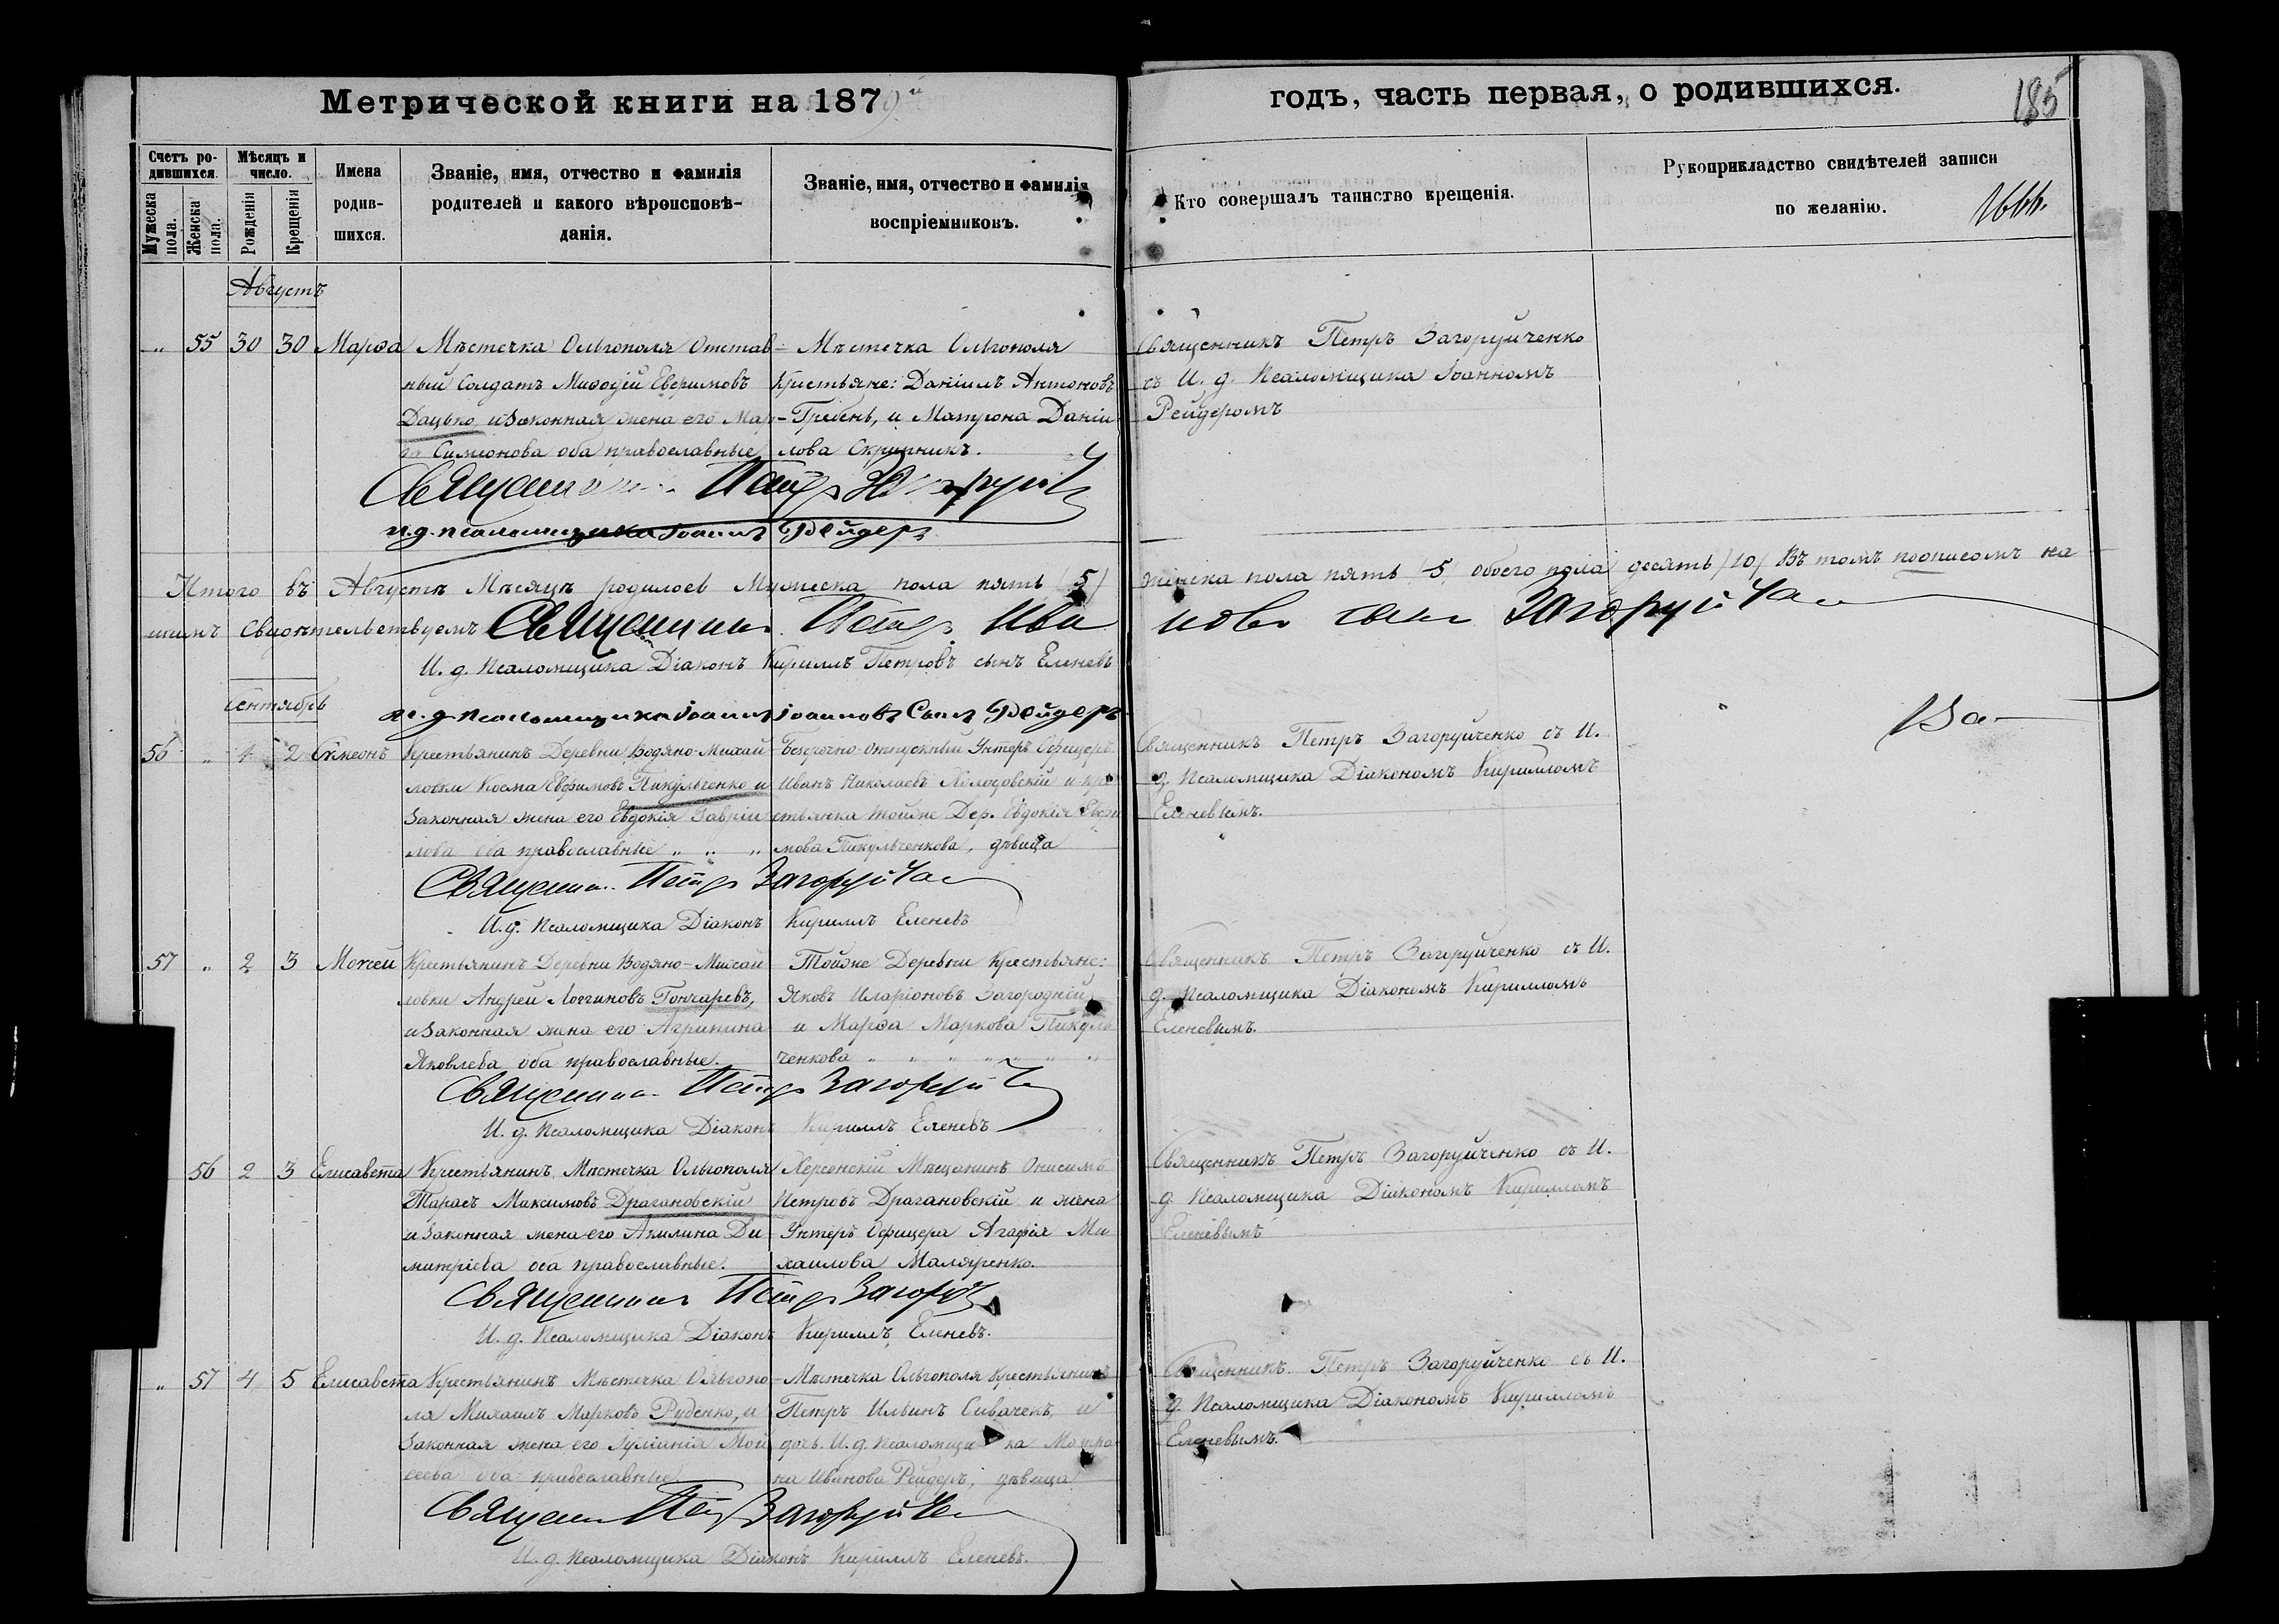 Метрической книги на 1879й
годъ, часть первая, о родившихся.
185
Счетъ родившихся.
Мужеска пола.
Женска пола.
Мѣсяцъ и число.
Рожденія
Крещенія
Имена родившихся.
Званіе, имя, отчество и фамилія
родителей и какого вѣроисповѣ-
данія.
Званіе, имя, отчество и фамилія
воспріемниковъ.
Кто совершалъ таинство крещенія.
Рукоприкладство свидѣтелей записи
по желанію.
Августъ
" 55 30 30 Марѳа
Мѣстечка Ольгополя Отстав-
ный Солдатъ Миѳодій Евфимовъ
Дацько, и законная жена его Мар-
Симіонова оба православные
Мѣстечка Ольгополя
Крестьяне: Даніилъ Антоновъ
Гребень, и Матрона Даніи
лова Скрипникъ.
Священникъ Петръ Загоруйченко
съ И. д. Псаломщика Іоанномъ
Рейдеромъ
Священникъ Петръ
и. д. псаломщика Іоаннъ Рейдеръ
Итого въ Августѣ Мѣсяцѣ родилось Мужеска пола пять (5)
женска пола пять 5, обоего пола десять /10/ Въ томъ подписомъ на
шимъ свидѣтельствуемъ Священникъ Петръ Ива
новъ сынъ Загоруйченко
И. д. Псаломщика Діаконъ Кириллъ Петровъ сынъ Еленевъ
и. д. Псаломщика Іоаннъ Іоанновъ Сынъ Рейдеръ
Сентябрь
56 " 1 2 Симеонъ
Крестьянинъ Деревни Водяно-Михай
ловки Косма Евфимовъ Пикульченко и
Законная жена его Евдокія Гавріи-
лова оба православные " " "
Безсрочно-отпускный Унтеръ Офицеръ
Иванъ Николаевъ Холодовскій и кре
стьянка тойже Дер. Евдокія Евфи
мова Пикульченкова, дѣвица
Священникъ Петръ Загоруйченко съ И.
д. Псаломщика Діакономъ Кирилломъ
Еленевымъ.
Священникъ Петръ Загоруйченко
И. д. Псаломщика Діаконъ Кириллъ Еленевъ
57 " 2 3 Моисей
Крестьянинъ Деревни Водяно-Михай
ловки Андрей Логгиновъ Гончаревъ,
и Законная жена его Агрипина
Яковлева оба православные.
Тойже Деревни Крестьяне:
Яковъ Иларіоновъ Загородній
и Марѳа Маркова Пикуль
ченкова " " " " " " "
Священникъ Петръ Загоруйченко съ И.
д. Псаломщика Діакономъ Кирилломъ
Еленевымъ.
Священникъ Петръ Загоруйченко
И. д. Псаломщика Діаконъ Кириллъ Еленевъ
56 2 3 Елисавета
Крестьянинъ Мѣстечка Ольгополя
Тарасъ Максимовъ Драгановскій
и Законная жена его Акилина Ди
митріева оба православные.
Херсонскій Мѣщанинъ Онисимъ
Петровъ Драгановскій и жена
Унтеръ Офицера Агафія Ми
хаилова Маляренко.
Священникъ Петръ Загоруйченко съ И.
д. Псаломщика Діакономъ Кирилломъ
Еленевымъ
Священникъ Петръ Загоруйченко
И. д. Псаломщика Діаконъ Кириллъ Еленевъ.
" 57 4 5 Елисавета
Крестьянинъ Мѣстечка Ольгопо-
ля Михаилъ Марковъ Руденко, и
Законная жена его Іуліанія Мой
сеева оба православные
Мѣстечка Ольгополя Крестьянинъ
Петръ Ильинъ Сивачекъ, и
дочь И. д. Псаломщика Матро
на Иванова Рейдеръ, дѣвица
Священникъ Петръ Загоруйченко съ И.
д. Псаломщика Діакономъ Кирилломъ
Еленевымъ.
Священникъ Петръ Загоруйченко
И. д. Псаломщика Діаконъ Кириллъ Еленевъ.